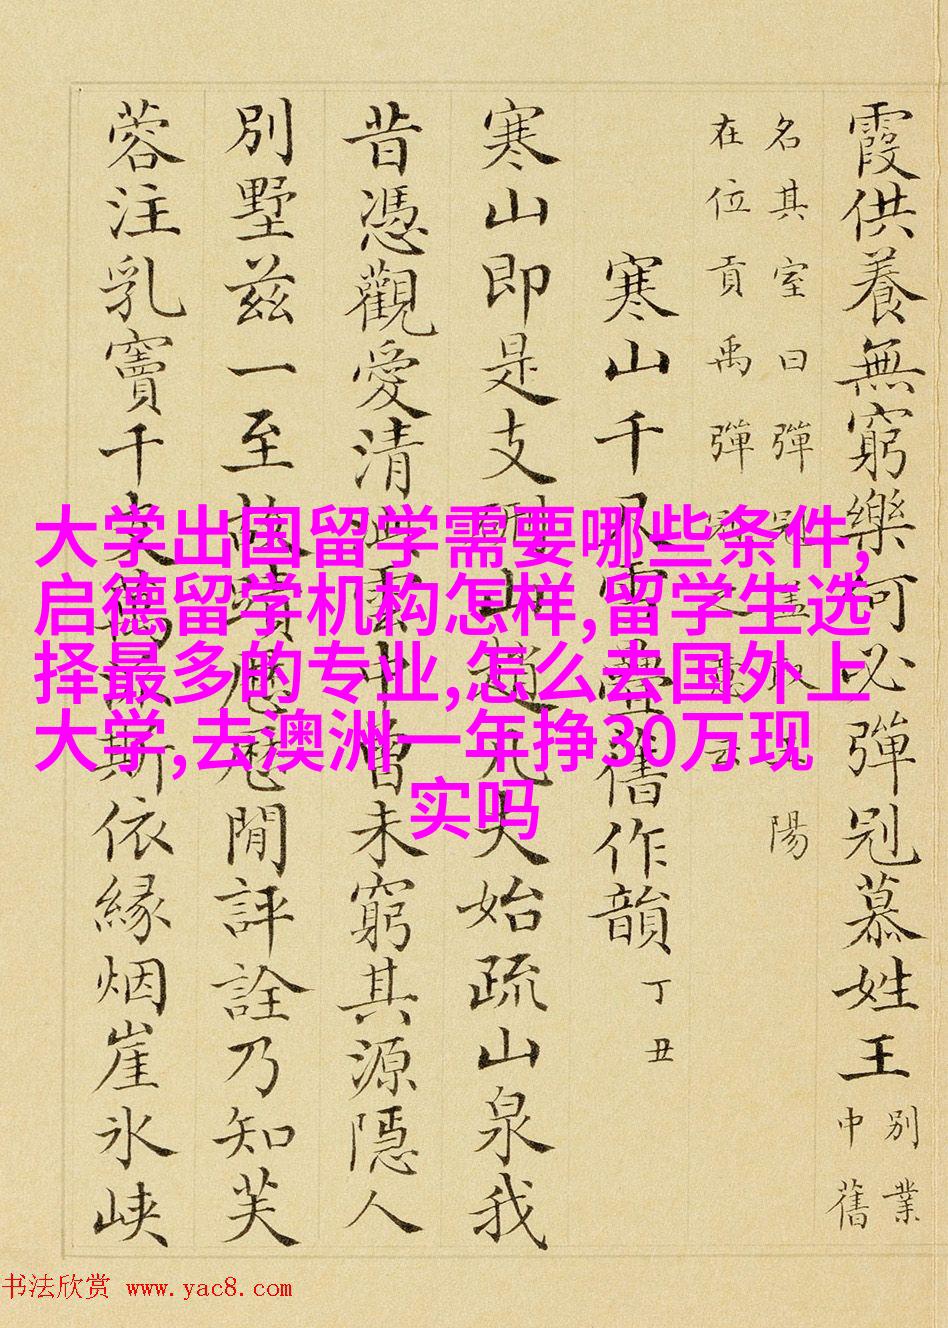 霞供養無窮樂何必彈冠慕姓王
別業
中舊
名其室曰彈冠盖取王陽
在位貢禹彈冠之意云
寒山千尺雪疊舊作韻 丁丑
寒山即是支硎山趙凡夫始疏山泉我
昔憑觀愛清雲中曾未窮其源隱人
別墅茲一至故蹟歷歷閒評詮乃知芙
蓉注乳竇千支萬派斯依緣烟崖氷峽
大学出国留学需要哪些条件,
启德留学机构怎样,留学生选
择最多的专业,怎么去国外上
大学,去澳洲一年挣30万现
实吗
书法欣赏 www.yac8.com